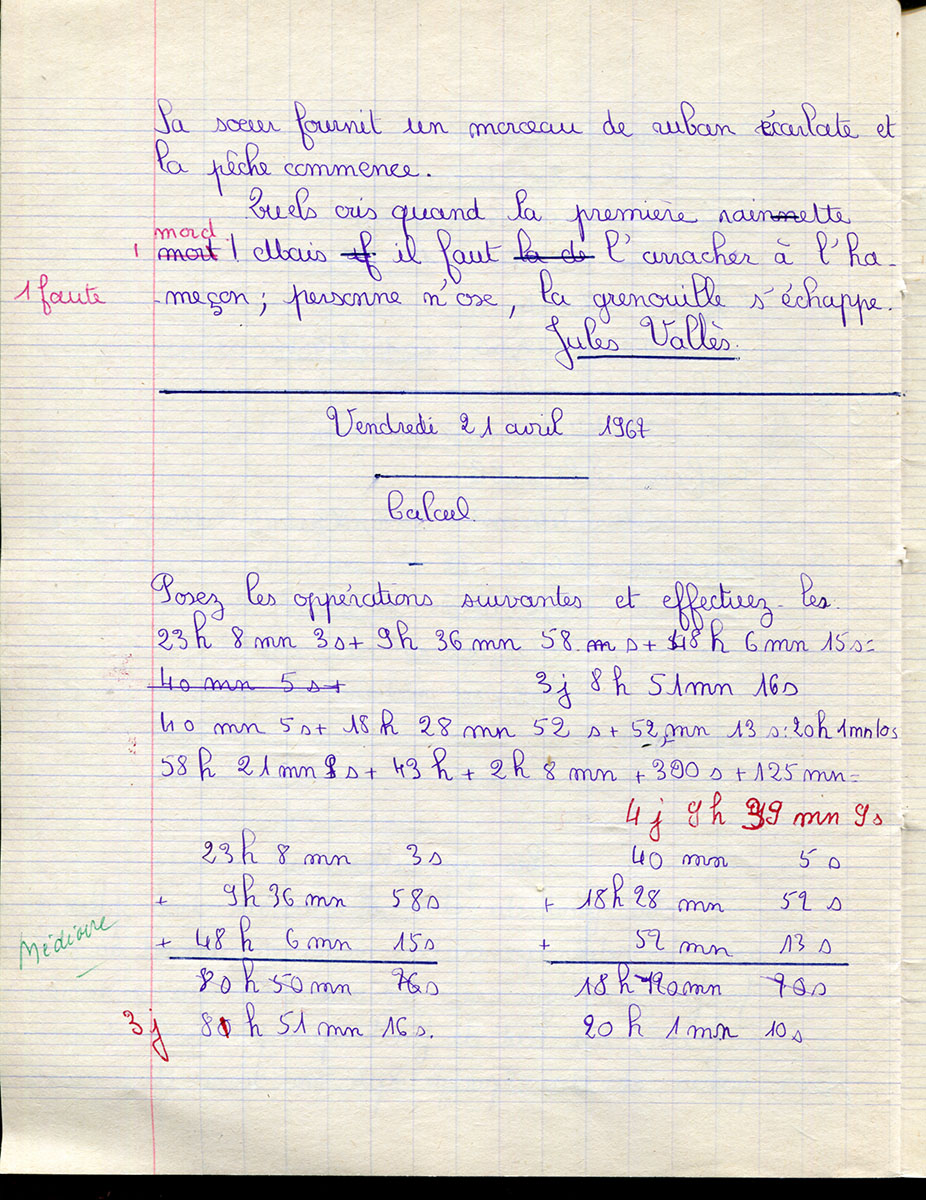 Sa sœur fournit un morceau de ruban écarlate et
la pêche commence.
Quels cris quand la première rainette
mord
! mort ! Mais il faut la de l'arracher à l'ha-
1 faute
-meçon ; personne n'ose, la grenouille s'échappe.
Jules Vallès.
Vendredi 21 avril 1967
Calcul
Posez les oppérations suivantes et effectuez-les.
23h 8 mn 3s + 9h 36 mn 58 s + 48h 6 mn 15s =
40 mn 5 s + 3j 8h 51mn 16s
40 mn 5s + 18h 28 mn 52 s + 52 mn 13 s : 20h 1mn 10s
58h 21mn s + 43h + 2h 8 mn + 300 s + 125 mn =
4j 9h 39 min 9s
23h 8 mn 3s 40 mn 5s
+ 9h 36 mn 58s + 18h 28 mn 52 s
Médiocre
+ 48h 6 mn 15s + 52 mn 13s
80h 50mn 76s 18h 120mn 70s
3j 8h 51mn 16s. 20h 1mn 10s